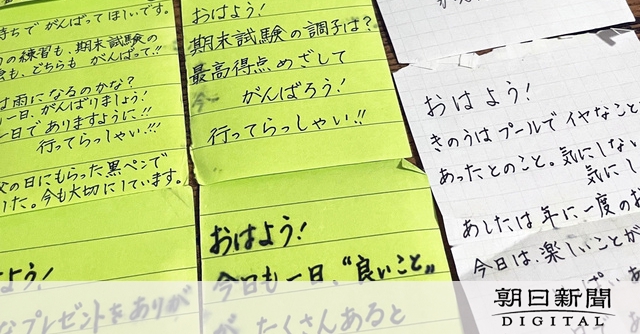 持ちで がんばってほしいです。
の練習も、期末試験の
も、どちらも がんばって!!
は雨になるのかな?
一日、がんばりましょう!
一日でありますように!!
行ってらっしゃい!!!
父の日にもらった黒ペンで
た。今も大切にしています。
おはよう!
期末試験の調子は?
最高得点めざして
がんばろう!
行ってらっしゃい!!
おはよう!
きのうはプールでイヤなこと
あったとのこと。気にしない
気にし
あしたは年に一度のお
今日は、楽しいことが
う!
なプレゼントをありが
おはよう!
今日も一日、“良いこと„
が たくさんあると
朝日新聞
DIGITAL